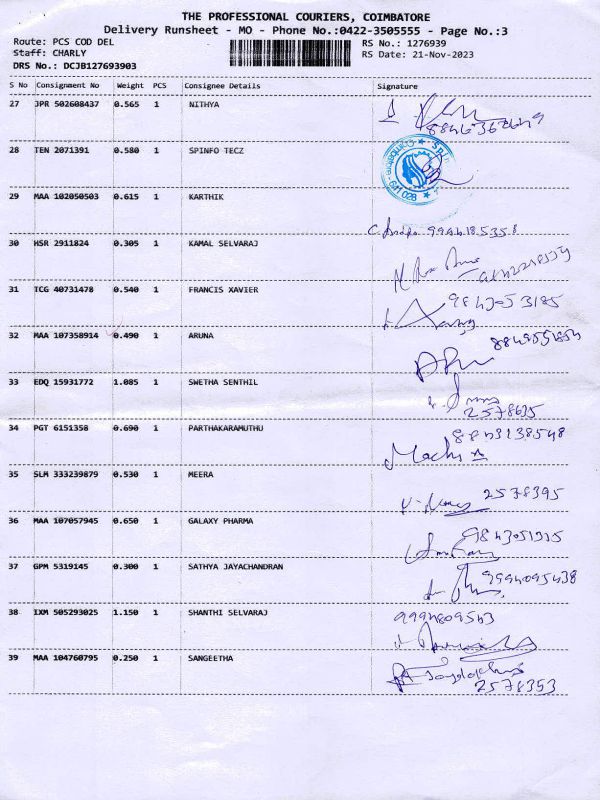 THE PROFESSIONAL COURIERS, COIMBATORE
Delivery Runsheet - MO - Phone No.:0422-3505555 - Page No.:3
Route: PCS COD DEL
RS No.: 1276939
Staff: CHARLY
RS Date: 21-Nov-2023
DRS No.: DCJB127693903
S No Consignment No Weight PCS Consignee Details Signature
27 JPR 502608437 0.565 1 NITHYA
28 TEN 2071391 0.580 1 SPINFO TECZ
Coimbatore 641 028
29 MAA 102050503 0.615 1 KARTHIK
9944185358
30 HSR 2911824 0.305 1 KAMAL SELVARAJ
31 TCG 40731478 0.540 1 FRANCIS XAVIER
9843053185
32 MAA 107358914 0.490 1 ARUNA
33 EDQ 15931772 1.085 1 SWETHA SENTHIL
2578635
34 PGT 6151358 0.690 1 PARTHAKARAMUTHU
8843138548
35 SLM 333239879 0.530 1 MEERA
2578395
36 MAA 107057945 0.650 1 GALAXY PHARMA
37 GPM 5319145 0.300 1 SATHYA JAYACHANDRAN
9994095438
38 IXM 505293025 1.150 1 SHANTHI SELVARAJ
39 MAA 104760795 0.250 1 SANGEETHA
2578353